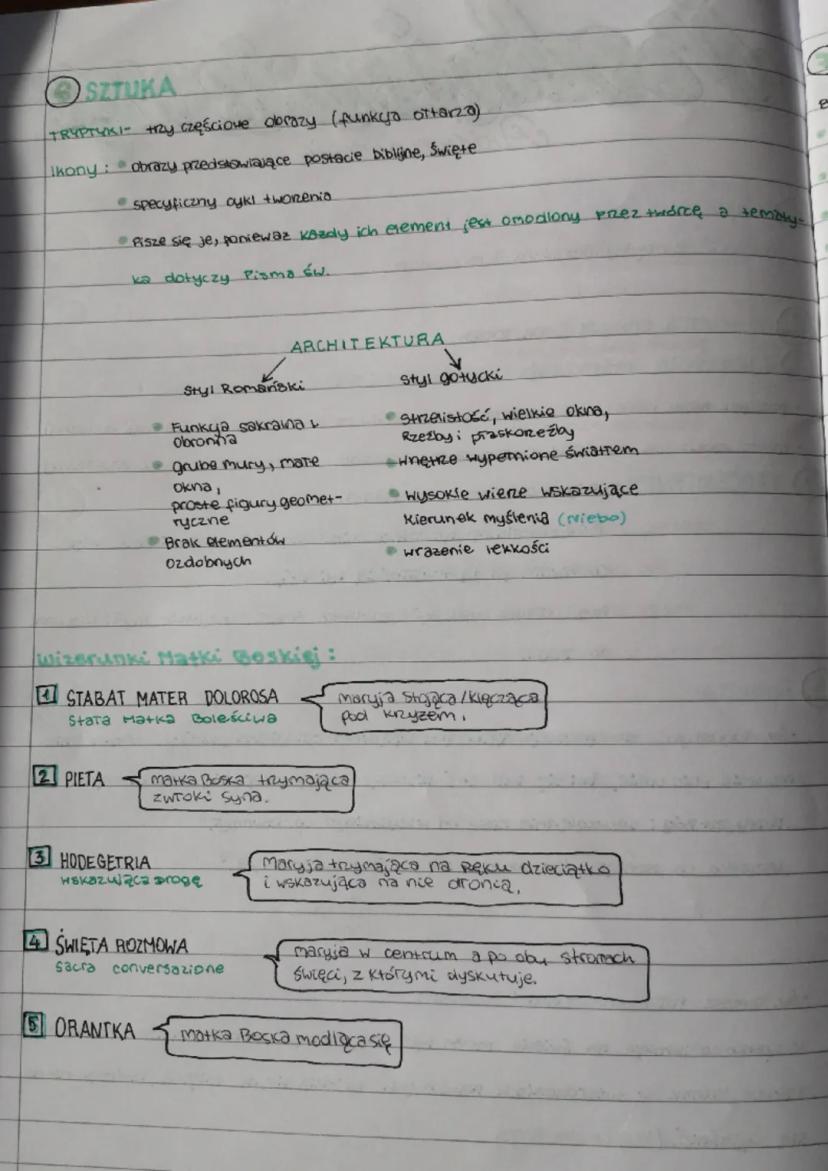 SZTUKA
TRYPTYKI- trzy częściowe obrazy (funkcja ołtarza)
Ikony: obrazy przedstawiające postacie biblijne, święte
specyficzny cykl tworzenia
Pisze się je, ponieważ każdy ich element jest omodlony przez twórcę a tematy-
ka dotyczy Pisma Św.
ARCHITEKTURA
Styl Romański
Funkcja sakralna i
obronna
grube mury, małe
okna,
proste figury geomet-
ryczne
Brak elementów
ozdobnych
Styl gotycki
Strzelistość, wielkie okna,
Rzeźby i płaskorzeźby
Wnętrze wypełnione światłem
Wysokie wieże wskazujące
kierunek myślenia (Niebo)
wrażenie lekkości
Wizerunki Matki Boskiej:
1 STABAT MATER DOLOROSA
Stała Matka Boleściwa
Maryja stojąca/klęcząca
pod krzyżem.
2 PIETA
Matka Boska trzymająca
zwłoki syna.
3 HODEGETRIA
wskazująca drogę
Maryja trzymająca na ręku dzieciątko
i wskazująca na nie dłonią.
4 ŚWIĘTA ROZMOWA
Sacra conversazione
Maryja w centrum a po obu stronach
święci, z którymi dyskutuje.
5 ORANTKA
Matka Boska modląca się